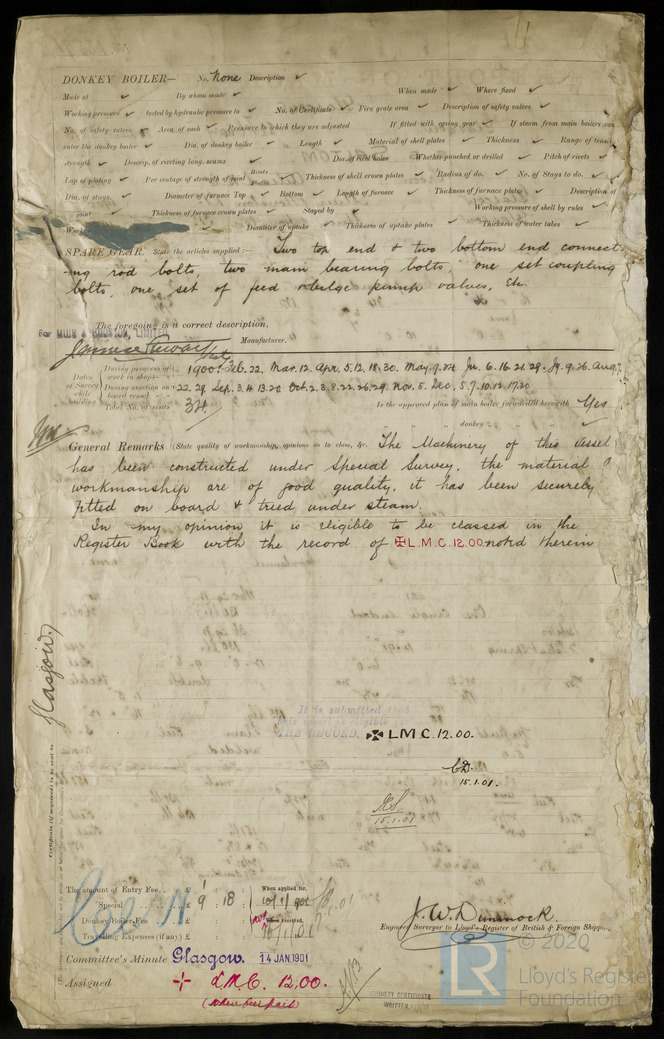 DONKEY BOILER— No. None Description ✓
Made at ✓ By whom made ✓ When made ✓ Where fixed ✓
Working pressure ✓ tested by hydraulic pressure to ✓ No. of Certificate ✓ Fire grate area ✓ Description of safety valves ✓
No. of safety valves ✓ Area of each ✓ Pressure to which they are adjusted If fitted with easing gear ✓ If steam from main boilers can
enter the donkey boiler ✓ Dia. of donkey boiler ✓ Length ✓ Material of shell plates ✓ Thickness ✓ Range of tensile
strength ✓ Descrip. of riveting long. seams ✓ Dia. of rivet holes Whether punched or drilled ✓ Pitch of rivets ✓
Lap of plating ✓ Per centage of strength of joint Rivets Plates Thickness of shell crown plates ✓ Radius of do. ✓ No. of Stays to do. ✓
Dia. of stays. ✓ Diameter of furnace Top ✓ Bottom ✓ Length of furnace ✓ Thickness of furnace plates ✓ Description of
joint ✓ Thickness of furnace crown plates ✓ Stayed by ✓ Working pressure of shell by rules ✓
Diameter of uptake ✓ Thickness of uptake plates ✓ Thickness of water tubes ✓
SPARE GEAR. State the articles supplied:— Two top end & two bottom end connect-
-ing rod bolts, two main bearing bolts, one set coupling
bolts, one set of feed & bilge pump valves, Etc.
The foregoing is a correct description,
Manufacturer.
Dates of Survey while building
During progress of work in shops— 1900. Feb. 22. Mar. 12. Apr. 5. 12. 18. 30. May. 9. Ju. 6. 16. 21. 29. Jy. 9. 26. Aug. 7.
During erection on board vessel— 22. 29. Sep. 3. 4. 13. 20. Oct. 2. 3. 8. 22. 26. 29. Nov. 5. Dec. 5. 7. 10. 12. 17. 20
Total No. of visits 34 Is the approved plan of main boiler forwarded herewith Yes
" " " donkey " " " ✓
General Remarks (State quality of workmanship, opinions as to class, &c. The Machinery of this vessel
has been constructed under Special Survey, the material &
workmanship are of good quality, it has been securely
fitted on board & tried under steam.
In my opinion it is eligible to be classed in the
Register Book with the record of ✠ L.M.C. 12.00. noted therein
Glasgow.
It is submitted that
this vessel is eligible for
THE RECORD. ✠ L.M.C. 12.00.
15.1.01.
15.1.01
The amount of Entry Fee . . £ When applied for,
Special . . . . £ 9 : 18 :
Donkey Boiler Fee . . . £ When received,
Travelling Expenses (if any) £
J. W. Dimmock.
Engineer Surveyor to Lloyd's Register of British & Foreign Shipping
Committee's Minute Glasgow. 14 JAN. 1901
Assigned + L.M.C. 12,00.
(when fees paid)
MACHINERY CERTIFICATE
WRITTEN
© 2020
LR
Lloyd's Register
Foundation